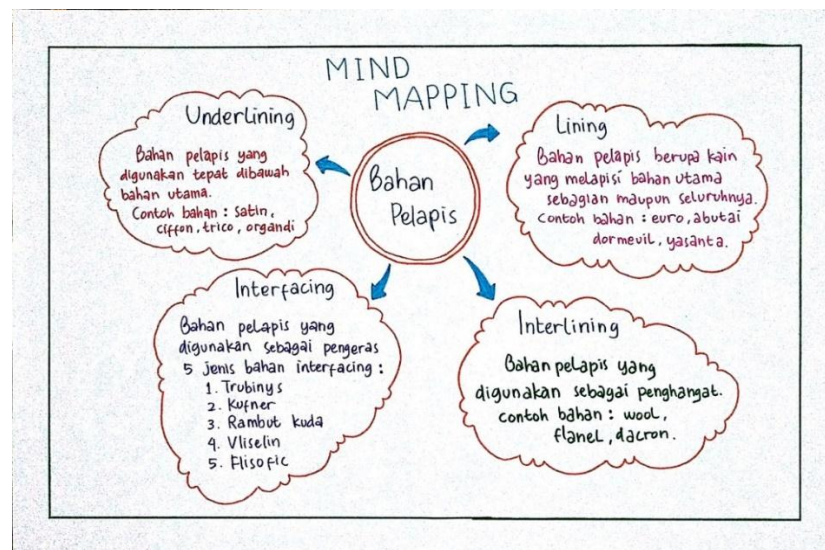 MIND
MAPPING
Underlining
Bahan pelapis yang
digunakan tepat dibawah
bahan utama.
Contoh bahan : satin,
ciffon, trico, organdi
Bahan
Pelapis
Lining
Bahan pelapis berupa kain
yang melapisi bahan utama
sebagian maupun seluruhnya.
contoh bahan : euro, abutai
dormeuil, yasanta.
Interfacing
Bahan pelapis yang
digunakan sebagai pengeras
5 jenis bahan interfacing :
1. Trubinys
2. Kufner
3. Rambut kuda
4. Vliselin
5. Flisofic
Interlining
Bahan pelapis yang
digunakan sebagai penghangat.
contoh bahan : wool,
flanel, dacron.